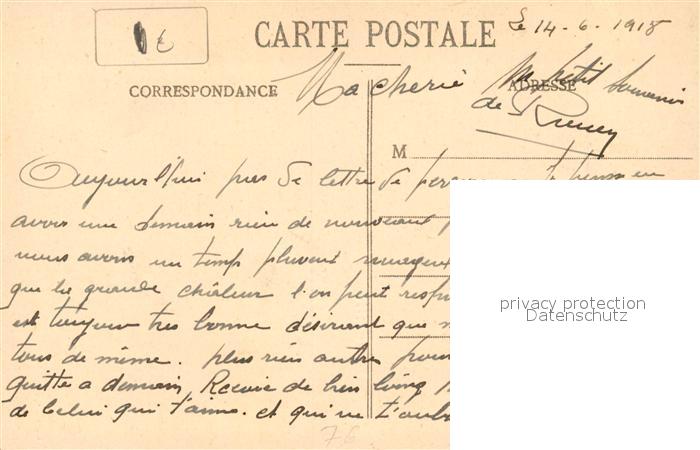 Le 14-6-1918
CARTE POSTALE
CORRESPONDANCE
ADRESSE
Ma cherie
un petit souvenir
de
M
Aujourd'hui pas de lettre de je pense en
avoir une demain rien de nouveau
nous avons un temps pluvieux
que la grande chaleur l'on peut
est toujour tres bonne désirant que
tous de même. plus rien autre pour
quitte a demain Recoie de bien loing
de Celui qui t'aime. et qui ne t'oubl
76
privacy protection
Datenschutz